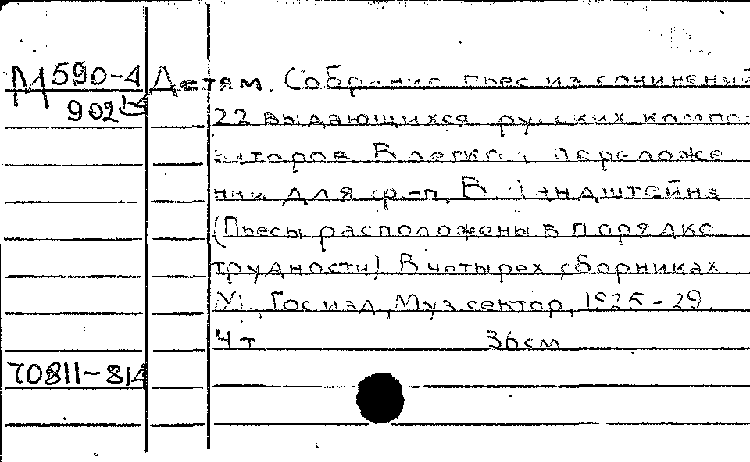 М 590-4 Детям. Собрание пьес из сочинений
902 22 выдающихся русских компо-
зиторов. В легком переложе
нии для ф-п. В.
(Пьесы расположены в порядке
трудности) В четырех сборниках
М., Госизд, Муз сектор, 1925-29
4 т 36см
70811-814